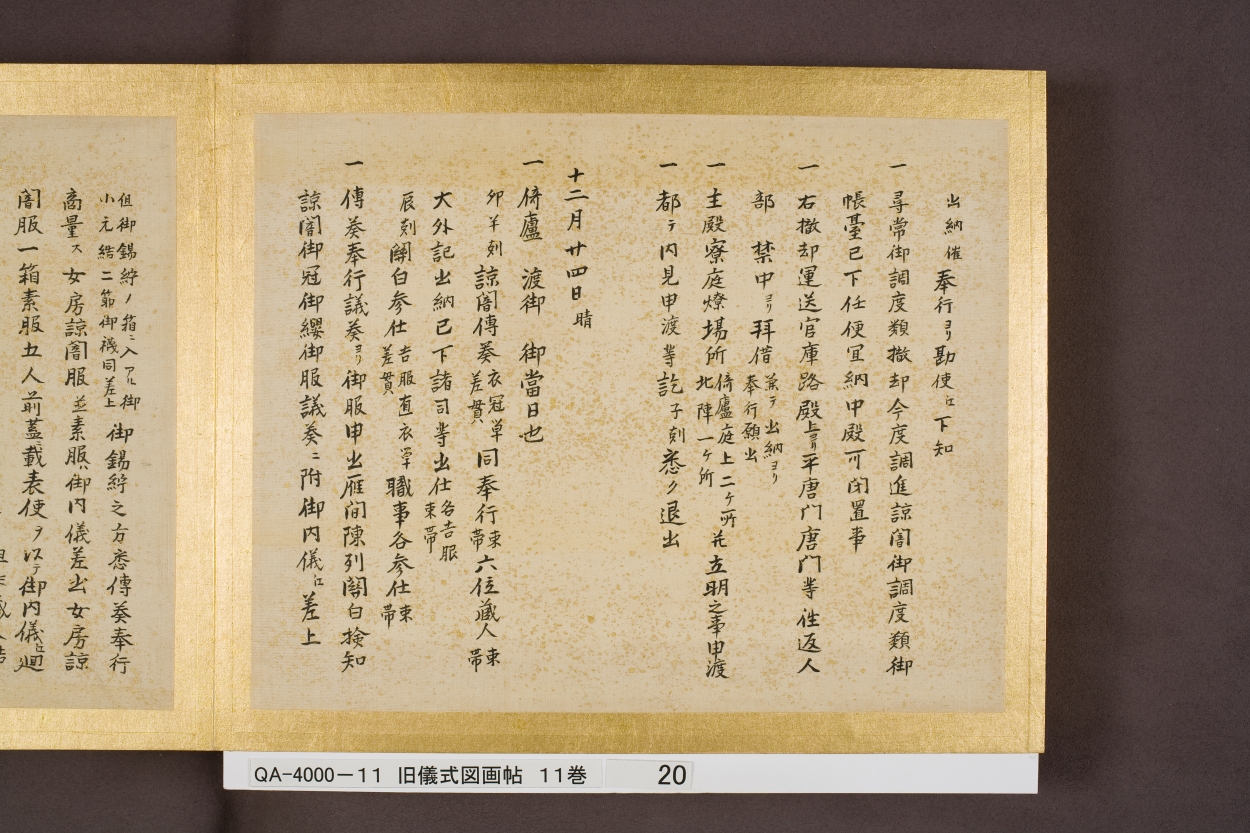 出納催奉行ヨリ勘使江下知
一尋常御調度類撤却今度調進諒闇御調度類御
帳臺已下任便宜納中殿可閉置事
一右撤却運送官庫路殿上ヨリ平唐門唐門等往返人
部禁中ヨリ拝借兼テ出納ヨリ奉行願出
一主殿寮庭燎場所倚廬庭上二ケ所北陣一ケ所并立明之事申渡
一都テ内見申渡等訖子刻悉ク退出
十二月廿四日晴
一倚廬渡御御當日也
卯半刻諒闇傳奏衣冠単差貫同奉行束帯六位蔵人束帯
大外記出納已下諸司等出仕各吉服束帯
辰刻関白参仕吉服直衣単差貫職事各参仕束帯
一傳奏奉行議奏ヨリ御服申出雁間陳列関白撿知
諒闇御冠御纓御服議奏ニ附御内儀江差上
但御錫紵ノ箱ニ入アル御
小元結二筋御襪同差上御錫紵之方悉傳奏奉行
商量ス女房諒闇服並素服ハ御内儀差出女房諒
闇服一箱素服五人前蓋載表使ヲ以テ御内儀江廻
QA-4000-11 旧儀式図画帖 11巻 20